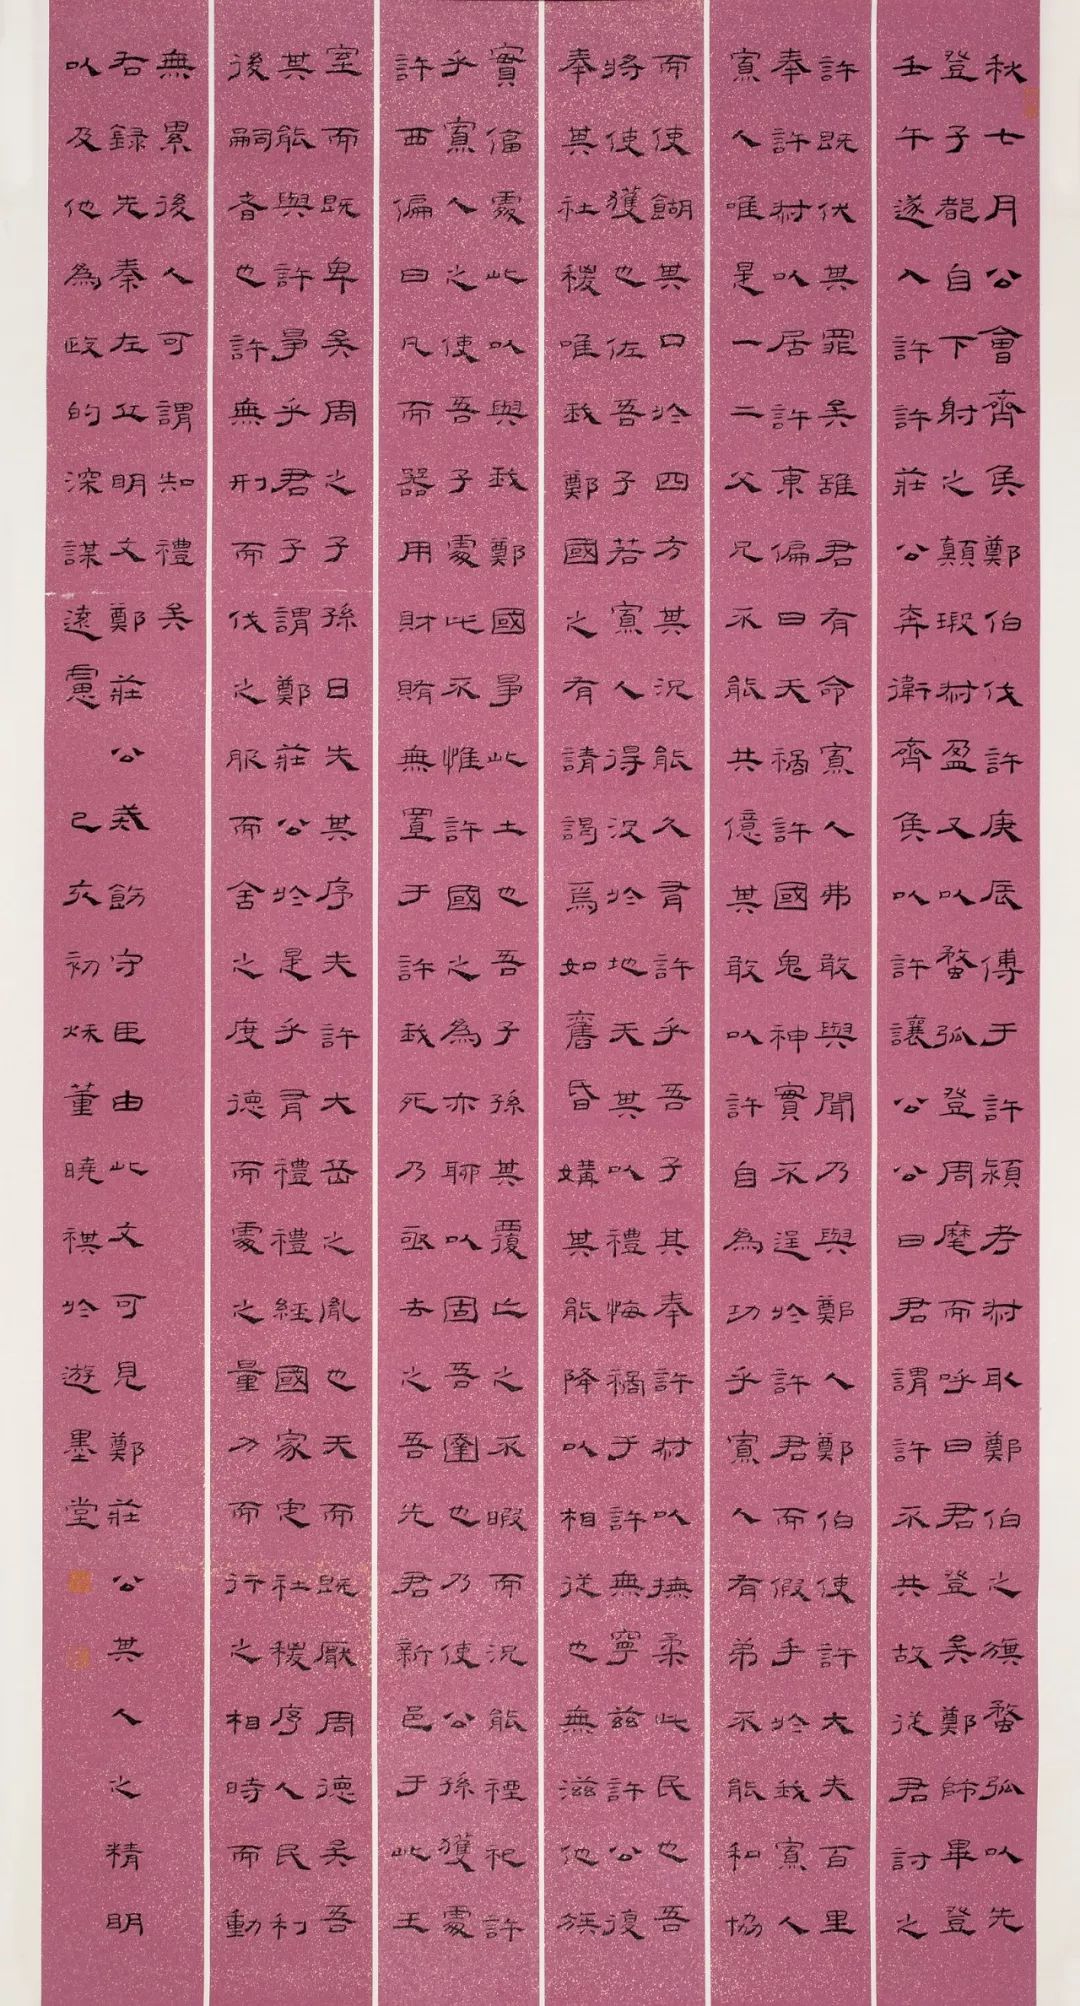 秋七月公會齊侯鄭伯伐許庚辰傅于許潁考叔取鄭伯之旗蝥弧以先
登子都自下射之顛瑕叔盈又以蝥弧登周麾而呼曰君登矣鄭師畢登
壬午遂入許許莊公奔衛齊侯以許讓公公曰君謂許不共故從君討之
許既伏其罪矣雖君有命寡人弗敢與聞乃與鄭人鄭伯使許大夫百里
奉許叔以居許東偏曰天禍許國鬼神實不逞於許君而假手於我寡人
寡人唯是一二父兄不能共億其敢以許自為功乎寡人有弟不能和協
而使餬其口於四方其況能久有許乎吾子其奉許叔以撫柔此民也吾
將使獲也佐吾子若寡人得沒於地天其以禮悔禍于許無寧茲許公復
奉其社稷唯我鄭國之有請謁焉如舊昏媾其能降以相從也無滋他族
實偪處此以與我鄭國爭此土也吾子孫其覆亡之不暇而況能禋祀許
乎寡人之使吾子處此不惟許國之為亦聊以固吾圉也乃使公孫獲處
許西偏曰凡而器用財賄無置于許我死乃亟去之吾先君新邑于此王
室而既卑矣周之子孫日失其序夫許大岳之胤也天而既厭周德矣吾
其能與許爭乎君子謂鄭莊公於是乎有禮禮經國家定社稷序人民利
後嗣者也許無刑而伐之服而舍之度德而處之量力而行之相時而動
無累後人可謂知禮矣
右録先秦左丘明文鄭莊公戒飭守臣由此文可見鄭莊公其人之精明
以及他為政的深謀遠慮己亥初秋董曉祺於遊墨堂